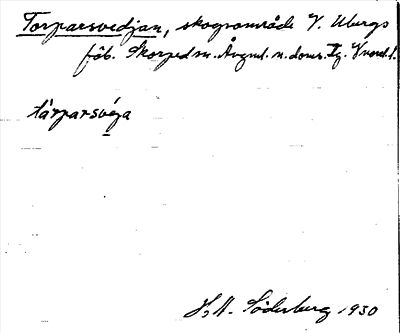 Torparsvedjan, skogsområde V. Ubergs
fäb. Skorped sn. Ångml. n. doms. Tg. V.nord.l.
tårparsvéga
H. N. Söderberg 1930